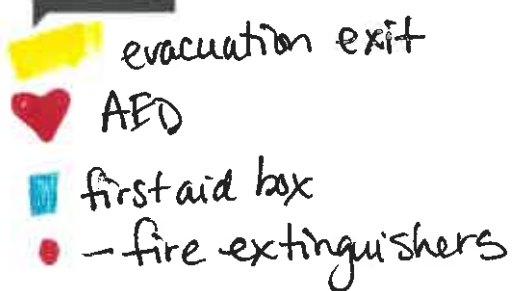 evacuation exit
AED
first aid box
- fire extinguishers